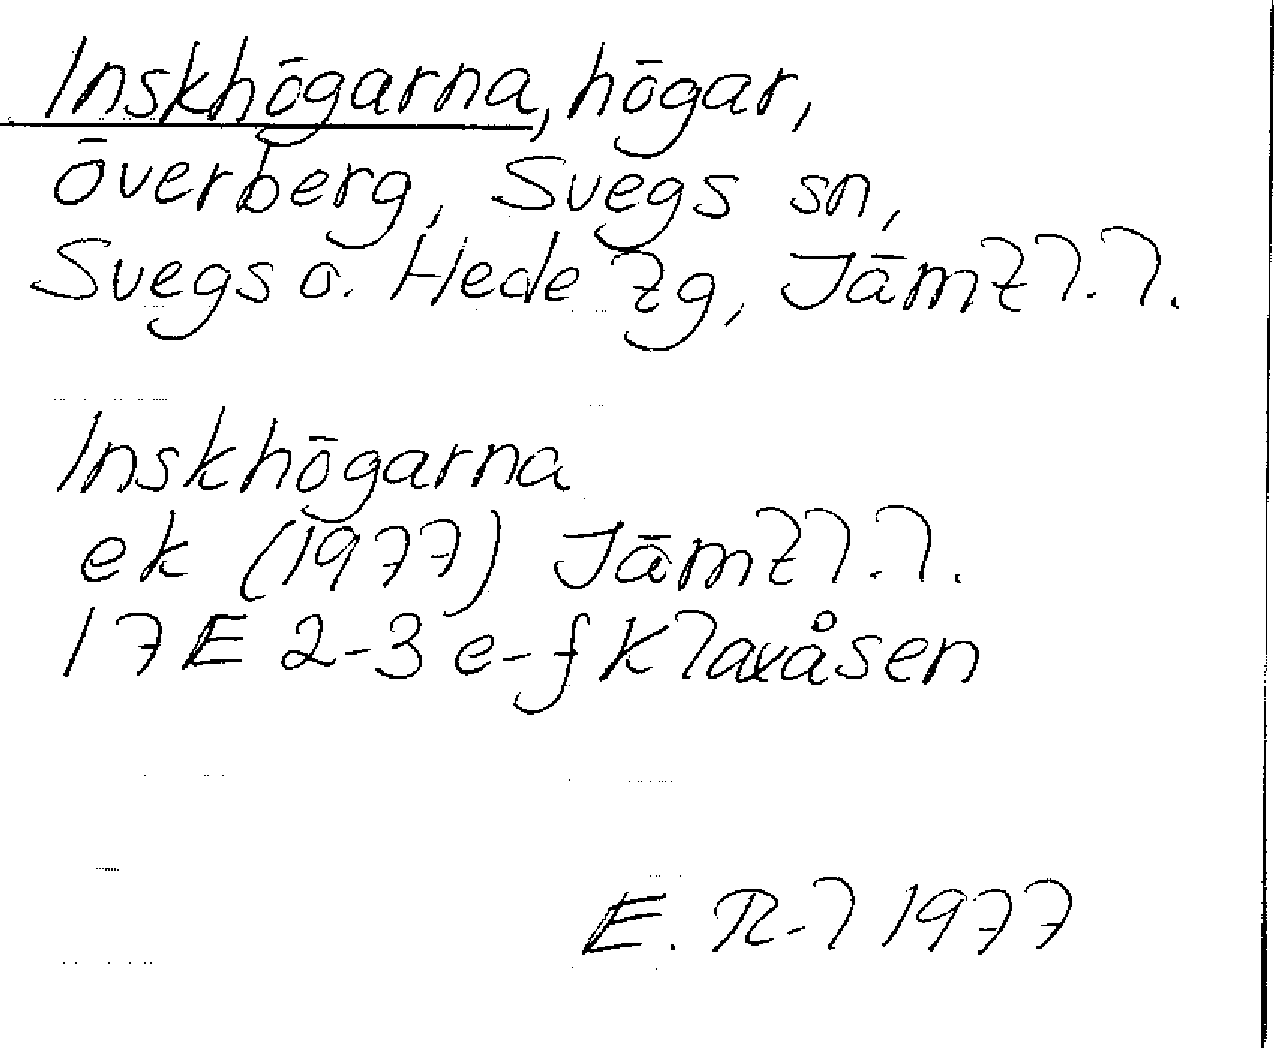 Inskhögarna, högar,
överberg, Svegs sn,
Svegs o. Hede tg, Jämtl.l.
Inskhögarna
ek (1977) Jämtl.l.
17E 2-3 e-f Klaxåsen
E. R-l 1977